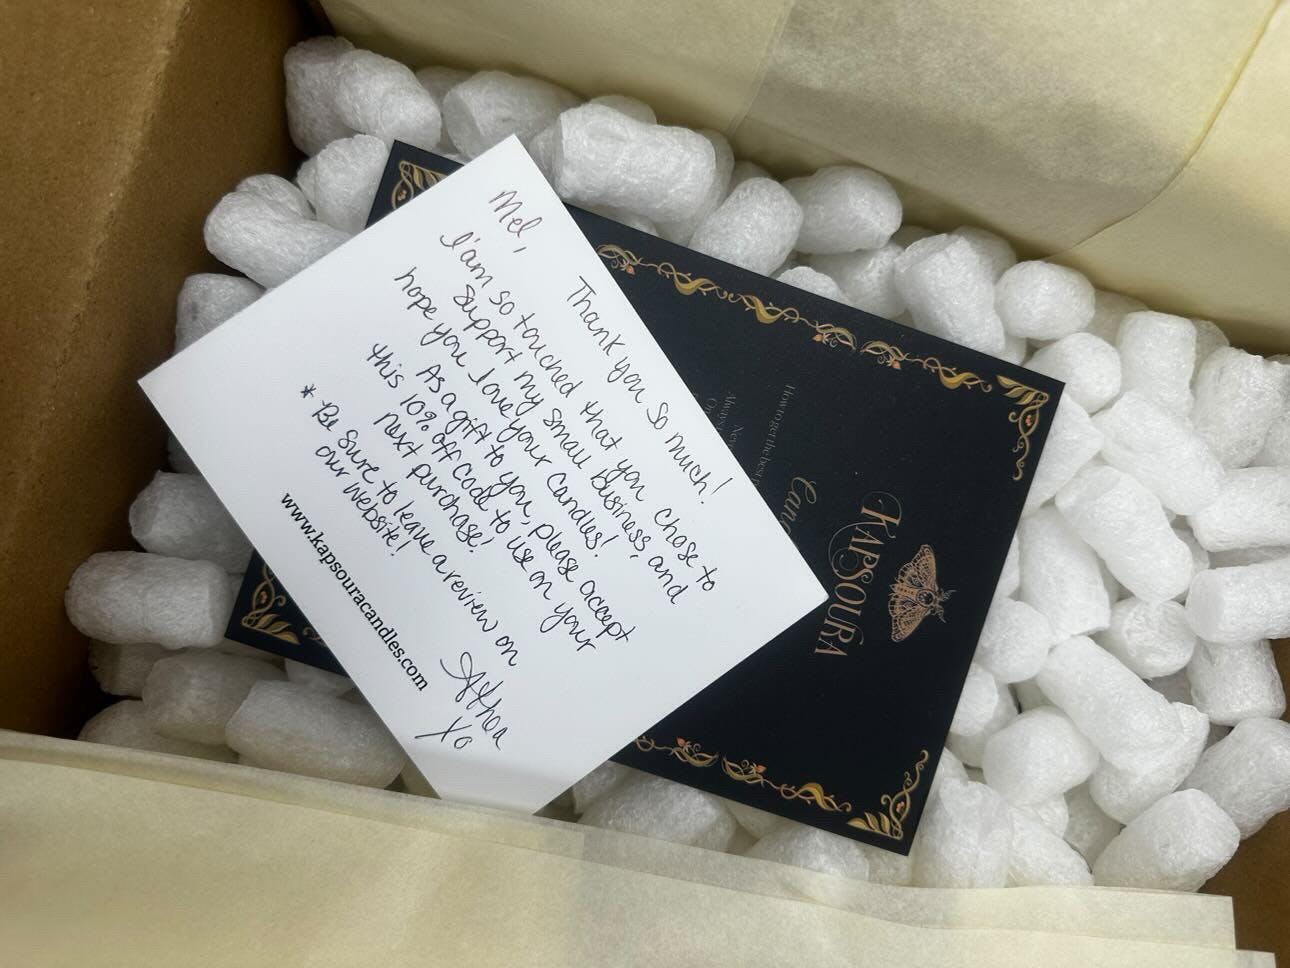 Mel,
Thank you so much!
I'am so touched that you chose to
support my small business, and
hope you love your candles!
As a gift to you, please accept
this 10% off code to use on your
next purchase!
* Be sure to leave a review on
our website!
Athea
XO
www.kapsouracandles.com
KAPSOURA
Cand
How to get the best
Always
On
Nev